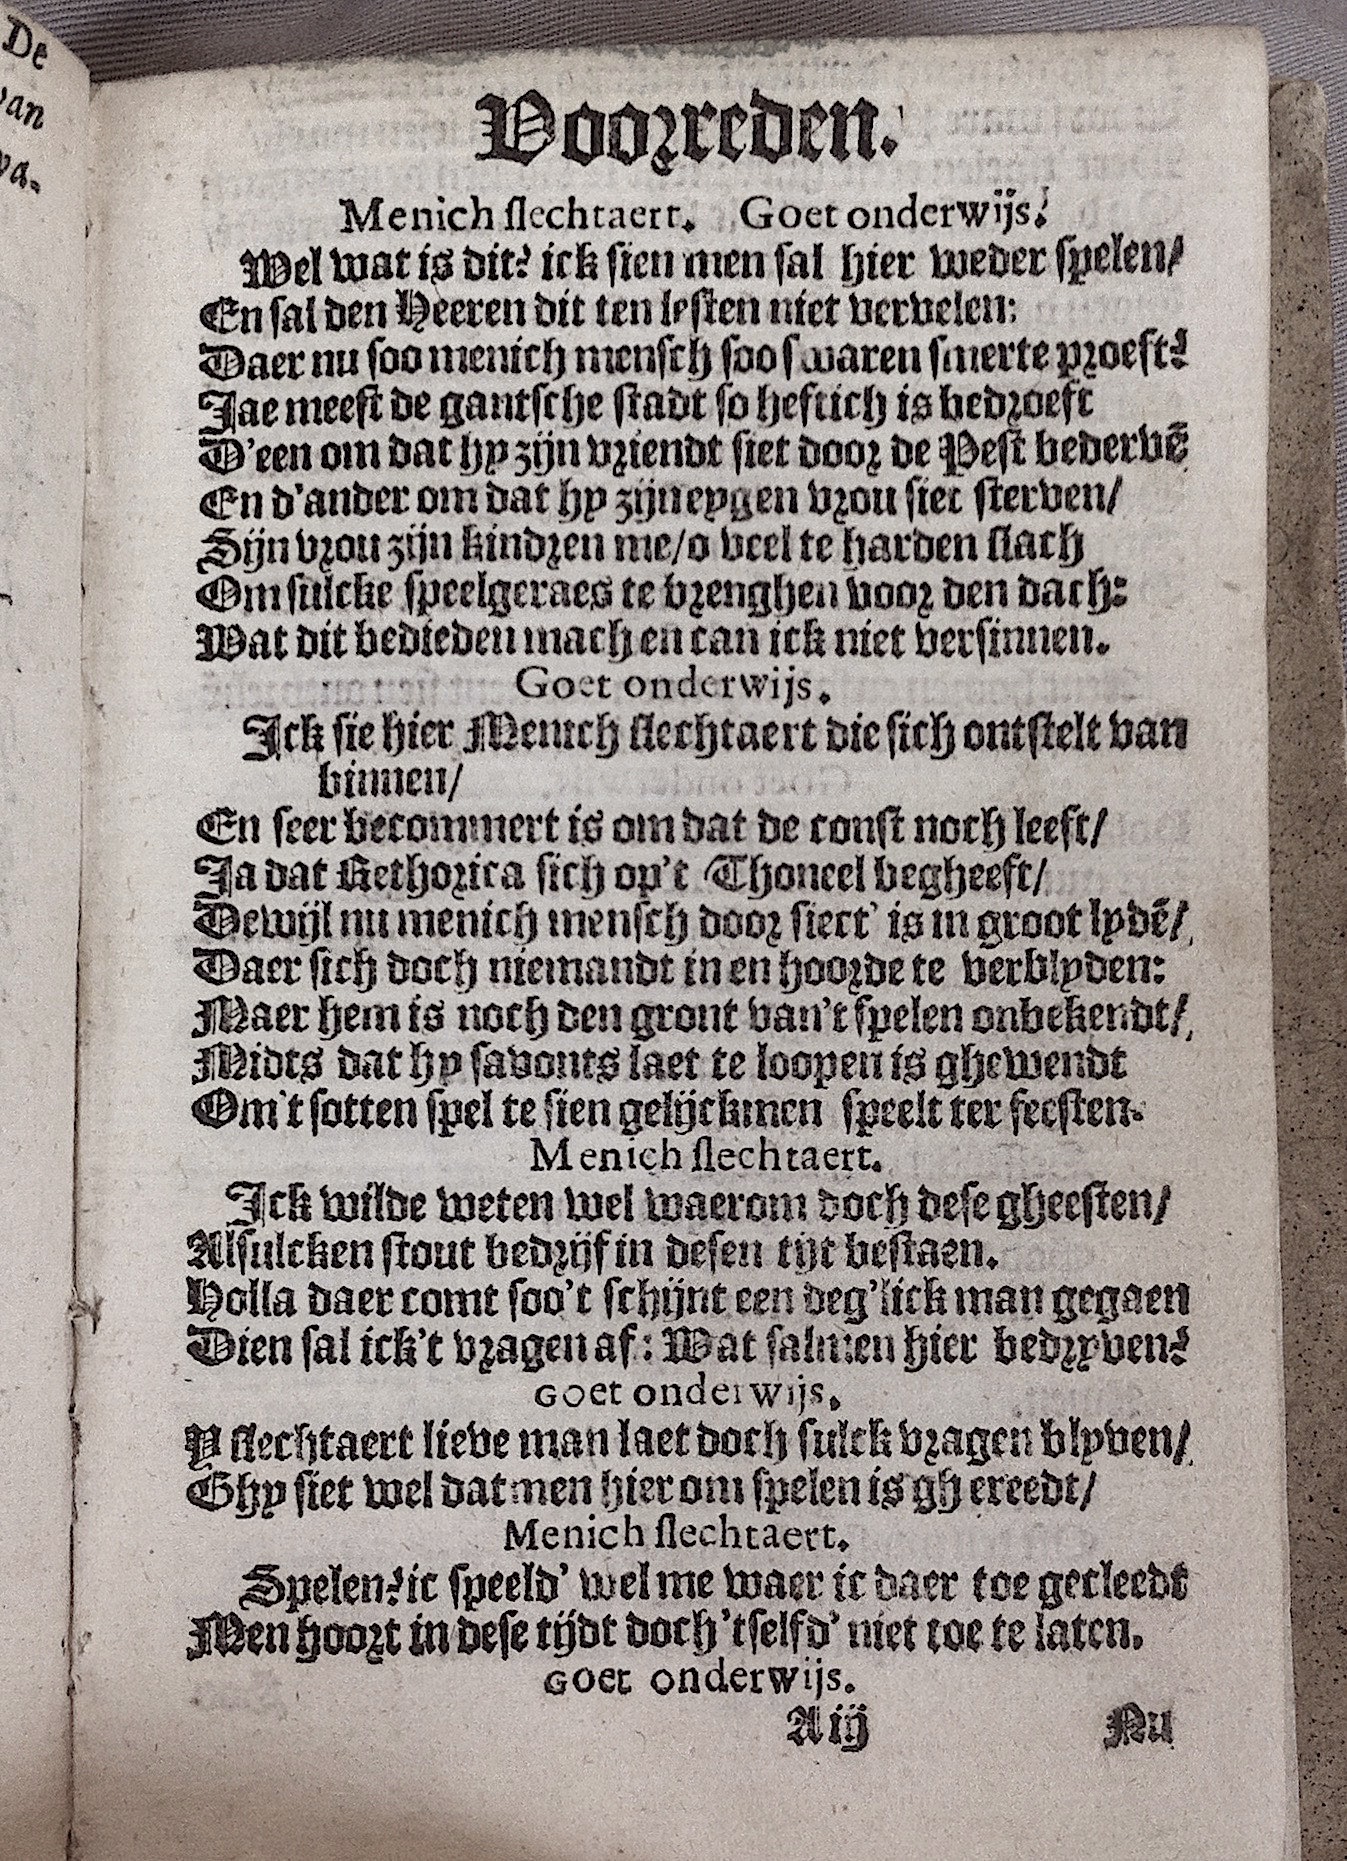 De
van
va-
Voorreden.
Menich slechtaert. Goet onderwijs.
Wel wat is dit? ick sien men sal hier weder spelen/
En sal den Heeren dit ten lesten niet vervelen:
Daer nu soo menich mensch soo swaren smerte proeft?
Jae meest de gantsche stadt so heftich is bedroeft
D'een om dat hy zijn vriendt siet door de Pest bedervē
En d'ander om dat hy zijn eygen vrou siet sterven/
Sijn vrou zijn kindren me/o veel te harden slach
Om sulcke speelgeraes te brenghen voor den dach:
Wat dit bedieden mach en can ick niet versinnen.
Goet onderwijs.
Ick sie hier Menich slechtaert die sich ontstelt van
binnen/
En seer becommert is om dat de const noch leeft/
Ja dat Rethorica sich op't Thoneel begheeft/
Dewijl nu menich mensch door siect' is in groot lydē/
Daer sich doch niemandt in en hoorde te verblyden:
Maer hem is noch den gront van't spelen onbekendt/
Midts dat hy savonts laet te loopen is ghewendt
Om't sotten spel te sien gelijckmen speelt ter feesten.
Menich slechtaert.
Ick wilde weten wel waerom doch dese gheesten/
Alsulcken stout bedrijf in desen tijt bestaen.
Holla daer comt soo't schijnt een deg'lick man gegaen
Dien sal ick't vragen af: Wat salmen hier bedryven?
Goet onderwijs.
Y slechtaert lieve man laet doch sulck vragen blyven/
Ghy siet wel datmen hier om spelen is gh ereedt/
Menich slechtaert.
Spelen? ic speeld' wel me waer ic daer toe gecleedt
Men hoort in dese tijdt doch 'tselfd' niet toe te laten.
Goet onderwijs.
A ij Nu